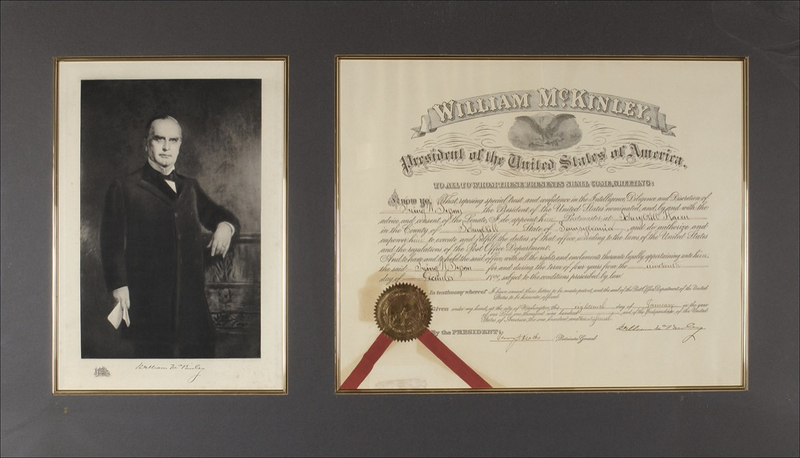 WILLIAM McKINLEY,
President of the United States of America,
TO ALL TO WHOM THESE PRESENTS SHALL COME, GREETING:
Know ye, That, reposing special trust and confidence in the Intelligence, Diligence and Discretion of
the President of the United States, nominated, and, by and with the
advice and consent of the Senate, did appoint Postmaster at Schuylkill Haven
in the County of Schuylkill State of Pennsylvania and do authorize and
empower to execute and fulfill the duties of that office, according to the laws of the United States
and the regulations of the Post Office Department:
And to have and to hold the said office with all the rights and emoluments thereunto legally appertaining unto
the said for and during the term of four years from the
day of subject to the conditions prescribed by law.
In testimony whereof I have caused these letters to be made patent, and the seal of the Post Office Department of the United
States to be hereunto affixed.
Given under my hand, at the city of Washington, this day of January in the year
of our Lord one thousand nine hundred and of the Independence of the United
States of America the one hundred and
William McKinley
By the PRESIDENT:
General
William McKinley